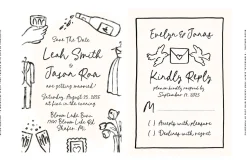 Save The Date
Leah Smith
&
Jason Roa
are getting married!
Saturday August 25, 2025
at five in the evening
Bloom Lake Barn
Shafer, Mn
Evelyn & Jonas
Kindly Reply
please kindly respond by
September 11, 2025
M
( ) Accepts with pleasure
( ) Declines with regret